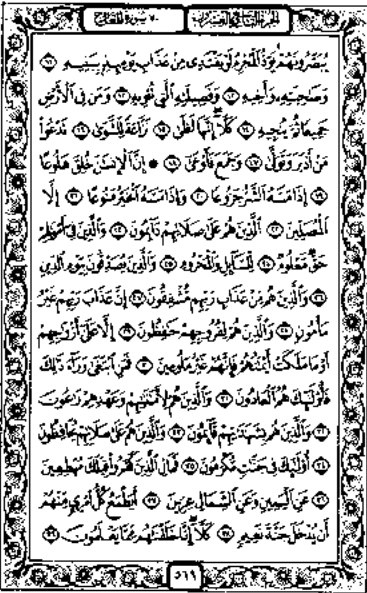 الجزء التاسع والعشرون ٧٠ سورة المعارج
يُبَصَّرُونَهُمْ يَوَدُّ الْمُجْرِمُ لَوْ يَفْتَدِى مِنْ عَذَابِ يَوْمِئِذٍ بِبَنِيهِ ١١
وَصَاحِبَتِهِ وَأَخِيهِ ١٢ وَفَصِيلَتِهِ الَّتِى تُـْٔوِيهِ ١٣ وَمَن فِى الْأَرْضِ
جَمِيعًا ثُمَّ يُنجِيهِ ١٤ كَلَّا إِنَّهَا لَظَىٰ ١٥ نَزَّاعَةً لِّلشَّوَىٰ ١٦ تَدْعُوا
مَنْ أَدْبَرَ وَتَوَلَّىٰ ١٧ وَجَمَعَ فَأَوْعَىٰ ١٨ * إِنَّ الْإِنسَانَ خُلِقَ هَلُوعًا
١٩ إِذَا مَسَّهُ الشَّرُّ جَزُوعًا ٢٠ وَإِذَا مَسَّهُ الْخَيْرُ مَنُوعًا ٢١ إِلَّا
الْمُصَلِّينَ ٢٢ الَّذِينَ هُمْ عَلَىٰ صَلَاتِهِمْ دَائِمُونَ ٢٣ وَالَّذِينَ فِى أَمْوَالِهِمْ
حَقٌّ مَّعْلُومٌ ٢٤ لِّلسَّائِلِ وَالْمَحْرُومِ ٢٥ وَالَّذِينَ يُصَدِّقُونَ بِيَوْمِ الدِّينِ
٢٦ وَالَّذِينَ هُم مِّنْ عَذَابِ رَبِّهِم مُّشْفِقُونَ ٢٧ إِنَّ عَذَابَ رَبِّهِمْ غَيْرُ
مَأْمُونٍ ٢٨ وَالَّذِينَ هُمْ لِفُرُوجِهِمْ حَافِظُونَ ٢٩ إِلَّا عَلَىٰ أَزْوَاجِهِمْ
أَوْ مَا مَلَكَتْ أَيْمَانُهُمْ فَإِنَّهُمْ غَيْرُ مَلُومِينَ ٣٠ فَمَنِ ابْتَغَىٰ وَرَاءَ ذَٰلِكَ
فَأُولَٰئِكَ هُمُ الْعَادُونَ ٣١ وَالَّذِينَ هُمْ لِأَمَانَاتِهِمْ وَعَهْدِهِمْ رَاعُونَ
٣٢ وَالَّذِينَ هُم بِشَهَادَاتِهِمْ قَائِمُونَ ٣٣ وَالَّذِينَ هُمْ عَلَىٰ صَلَاتِهِمْ يُحَافِظُونَ
٣٤ أُولَٰئِكَ فِى جَنَّاتٍ مُّكْرَمُونَ ٣٥ فَمَالِ الَّذِينَ كَفَرُوا قِبَلَكَ مُهْطِعِينَ
٣٦ عَنِ الْيَمِينِ وَعَنِ الشِّمَالِ عِزِينَ ٣٧ أَيَطْمَعُ كُلُّ امْرِئٍ مِّنْهُمْ
أَن يُدْخَلَ جَنَّةَ نَعِيمٍ ٣٨ كَلَّا إِنَّا خَلَقْنَاهُم مِّمَّا يَعْلَمُونَ ٣٩
٥٦٩